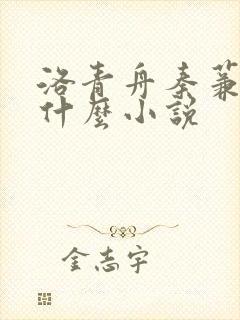 洛青舟秦蒹
什麼小說
金志宇